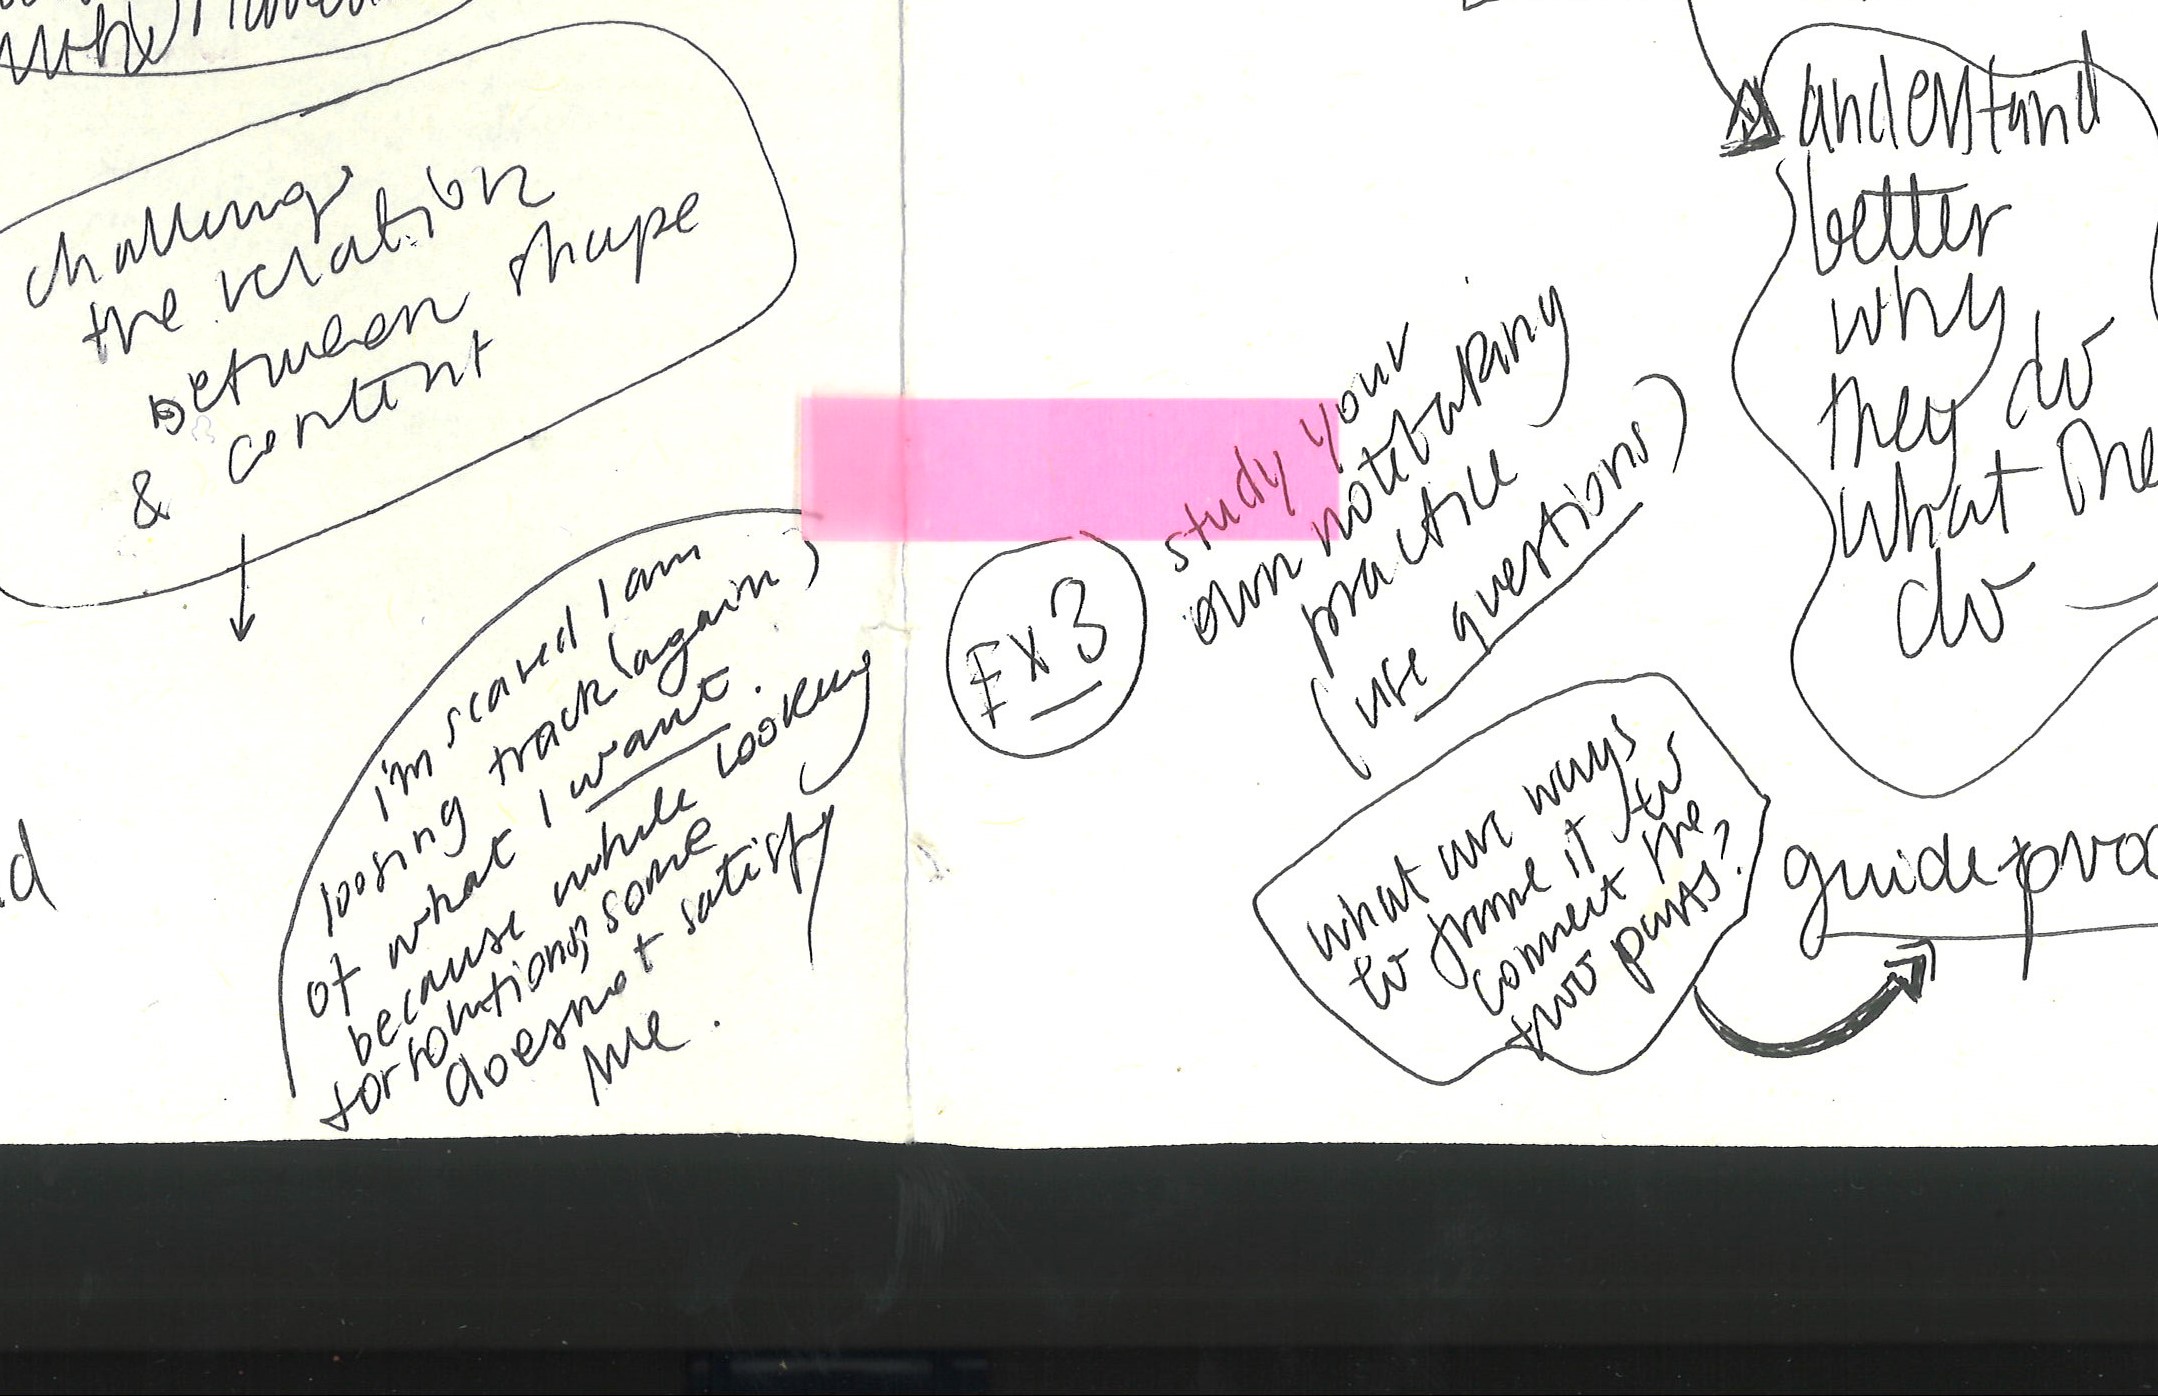 challenge
the relation
between shape
& content
i'm scared I am
loosing track (again)
of what I want.
because while looking
for solutions, some
does not satisfy
me.
EX 3
study your
own notetaking
practice
(use questions)
what are ways
to frame it to
connect the
two parts?
understand
better
why
they do
what the
do
guide + prac